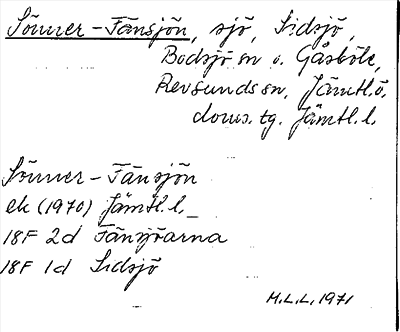 Sönner-Fänsjön, sjö, Sidsjö,
Bodsjö sn o. Gåsböle,
Revsunds sn, Jämtl.ö.
doms. tg. Jämtl. l.
Sönner-Fänsjön
ek (1970) Jämtl. l.
18F 2d Fänsjöarna
18F 1d Sidsjö
M.L.L. 1971